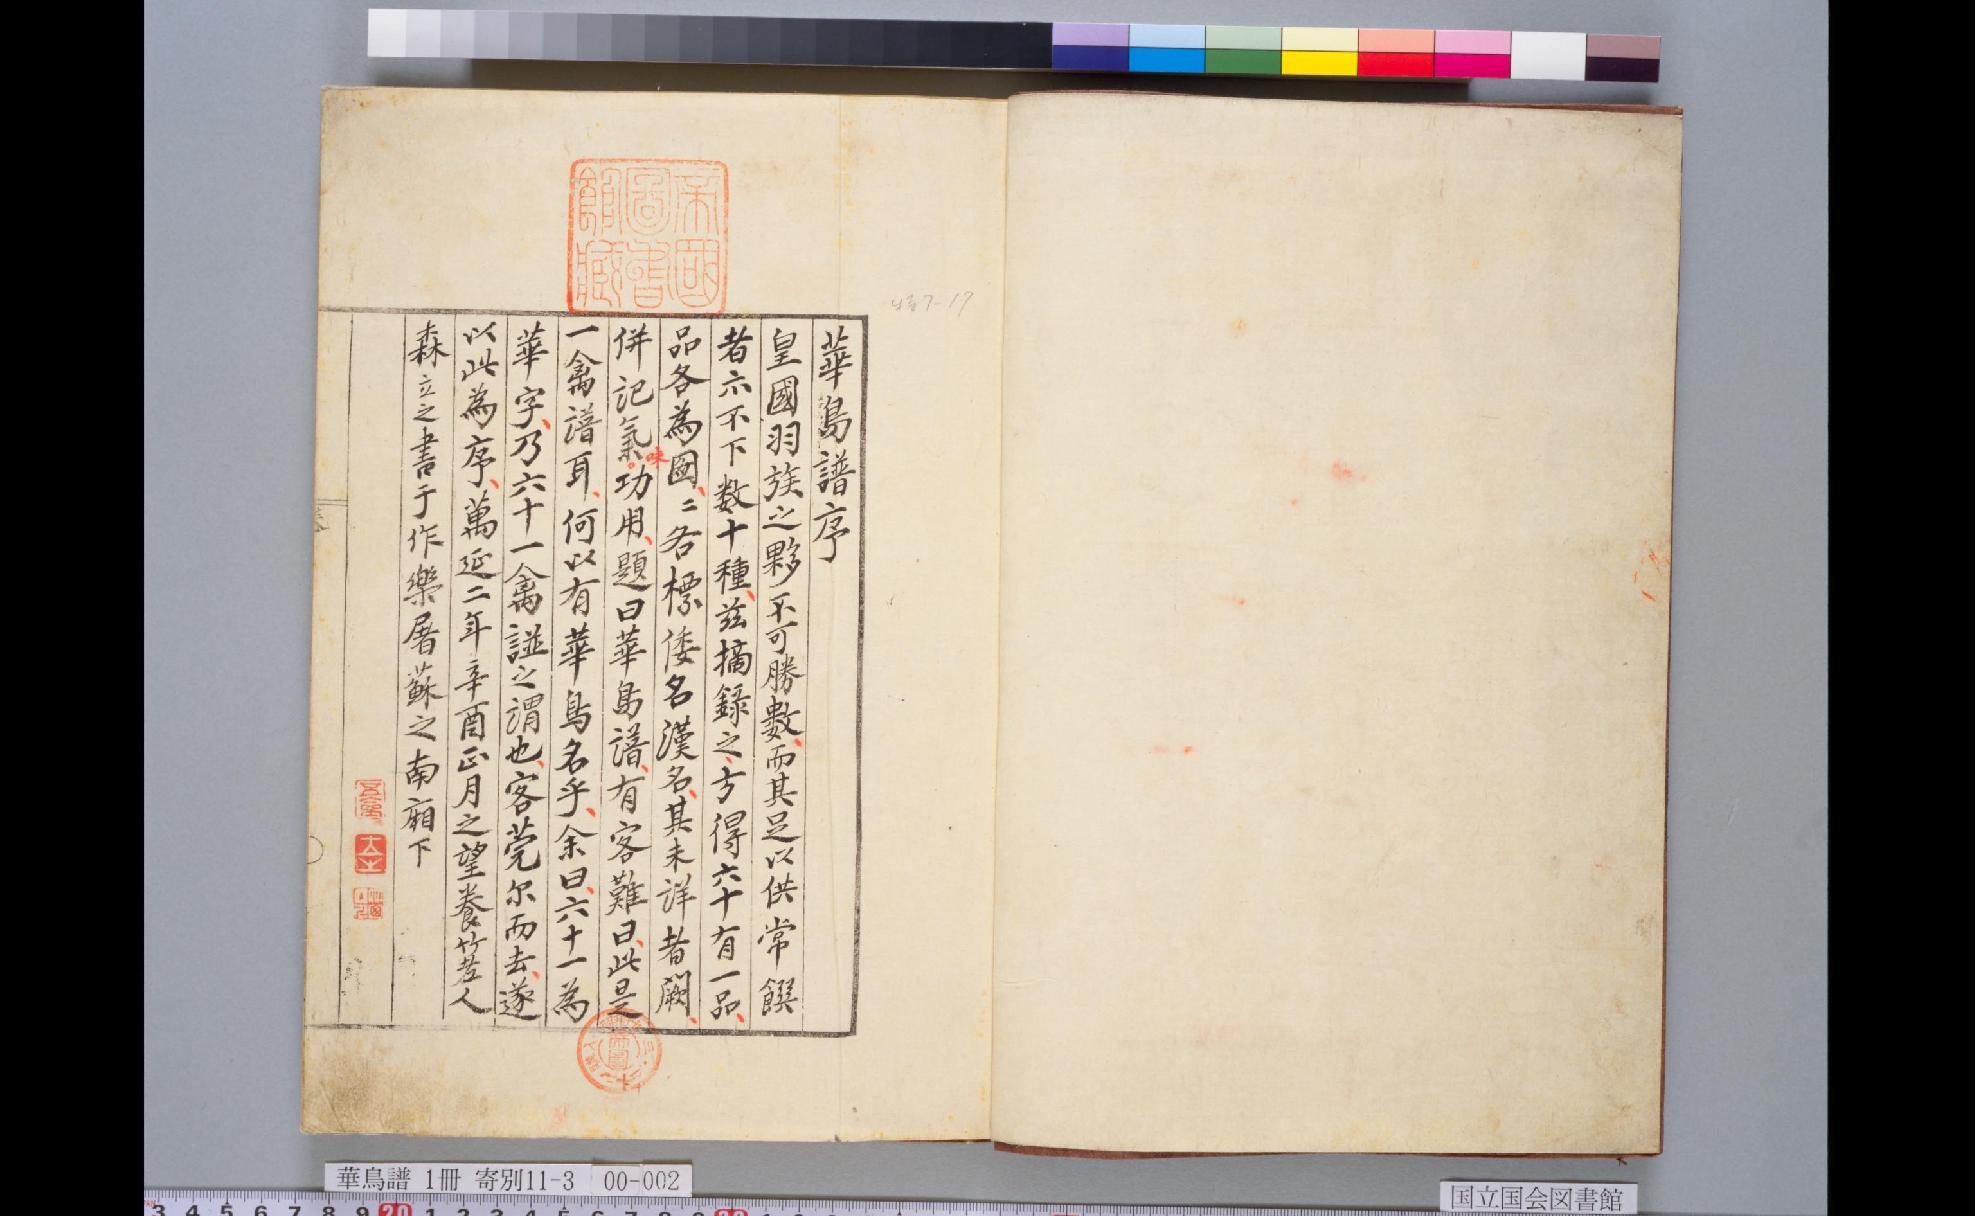 華鳥譜序
皇國羽族之夥不可勝數、而其足以供常饌
者亦不下数十種、茲摘録之、方得六十有一品、
品各為圖、〻各標倭名漢名、其未詳者闕、
併記氣味功用、題曰華鳥譜、有客難曰、此是
一禽譜耳、何以有華鳥名乎、余曰、六十一為
華字、乃六十一禽譜之謂也、客莞尔而去、遂
以此為序、萬延二年辛酉正月之望養竹
人
森立之書于作樂屠蘇之南廂下
帝國
圖書
館藏
華鳥譜 1冊 寄別11-3 00-002
国立国会図書館
3 4 5 6 7 8 9 20 1 2 3 4 5 6 7 8 9 30